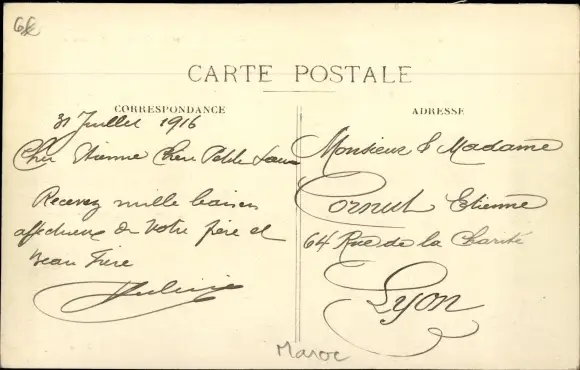 6k
CARTE POSTALE
CORRESPONDANCE
31 Juillet 1916
Cher Etienne Chère Petite Soeur
Recevez mille baisers
affectueux de votre frère et
beau Frère
ADRESSE
Monsieur & Madame
Cornut Etienne
64 Rue de la Charité
Lyon
Maroc